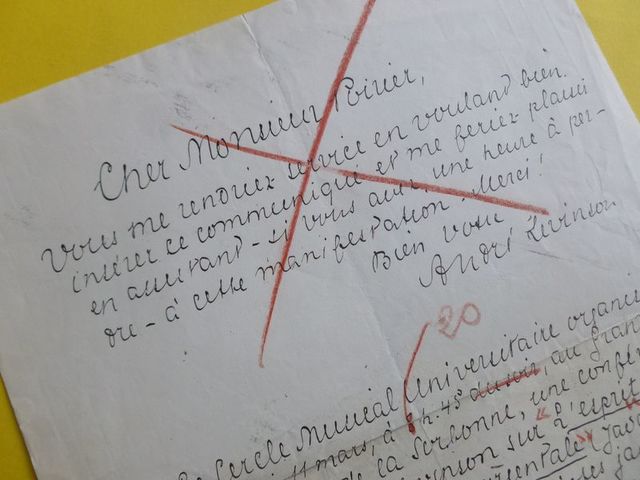 Cher Monsieur Poirier,
Vous me rendriez service en voulant bien
insérer ce communiqué et me feriez plaisir
en assistant - si vous avez une heure à per-
dre - à cette manifestation. Merci!
Bien vôtre
André Levinson
20
Le Cercle Musical Universitaire organise
11 mars, à h. 45 du soir, au Grand
de la Sorbonne, une confé
sur "l'esprit